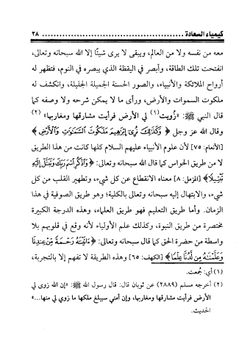 ٣٨ كيمياء السعادة
معه من نفسه ولا من العالم، ويبقى لا يرى شيئًا إلا الله سبحانه وتعالى،
انفتحت تلك الطاقة، وأبصر في اليقظة الذي يبصره في النوم، فتظهر له
أرواح الملائكة والأنبياء، والصور الحسنة الجميلة الجليلة، وانكشف له
ملكوت السموات والأرض، ورأى ما لا يمكن شرحه ولا وصفه كما
قال النبي ﷺ: «زُويت(١) لي الأرض فرأيت مشارقها ومغاربها»(٢)
وقال الله عز وجل ﴿وَكَذَٰلِكَ نُرِي إِبْرَاهِيمَ مَلَكُوتَ السَّمَاوَاتِ وَالْأَرْضِ﴾
[الأنعام: ٧٥] لأن علوم الأنبياء عليهم السلام كلها كانت من هذا الطريق
لا من طريق الحواس كما قال الله سبحانه وتعالى: ﴿وَاذْكُرِ اسْمَ رَبِّكَ وَتَبَتَّلْ إِلَيْهِ
تَبْتِيلًا﴾ [المزمل: ٨] معناه الانقطاع عن كل شيء، وتطهير القلب من كل
شيء، والابتهال إليه سبحانه وتعالى بالكلية؛ وهو طريق الصوفية في هذا
الزمان. وأما طريق التعليم فهو طريق العلماء، وهذه الدرجة الكبيرة
مختصرة من طريق النبوة، وكذلك علم الأولياء لأنه وقع في قلوبهم بلا
واسطة من حضرة الحق كما قال سبحانه وتعالى: ﴿آتَيْنَاهُ رَحْمَةً مِنْ عِنْدِنَا
وَعَلَّمْنَاهُ مِنْ لَدُنَّا عِلْمًا﴾ [الكهف: ٦٥] وهذه الطريقة لا تفهم إلا بالتجربة،
(١) أي: جُمعت.
(٢) أخرجه مسلم (٢٨٨٩) عن ثوبان قال: قال رسول الله ﷺ: «إن الله زوى لي
الأرض فرأيت مشارقها ومغاربها، وإن أمتي سيبلغ ملكها ما زوي لي منها...»
الحديث.